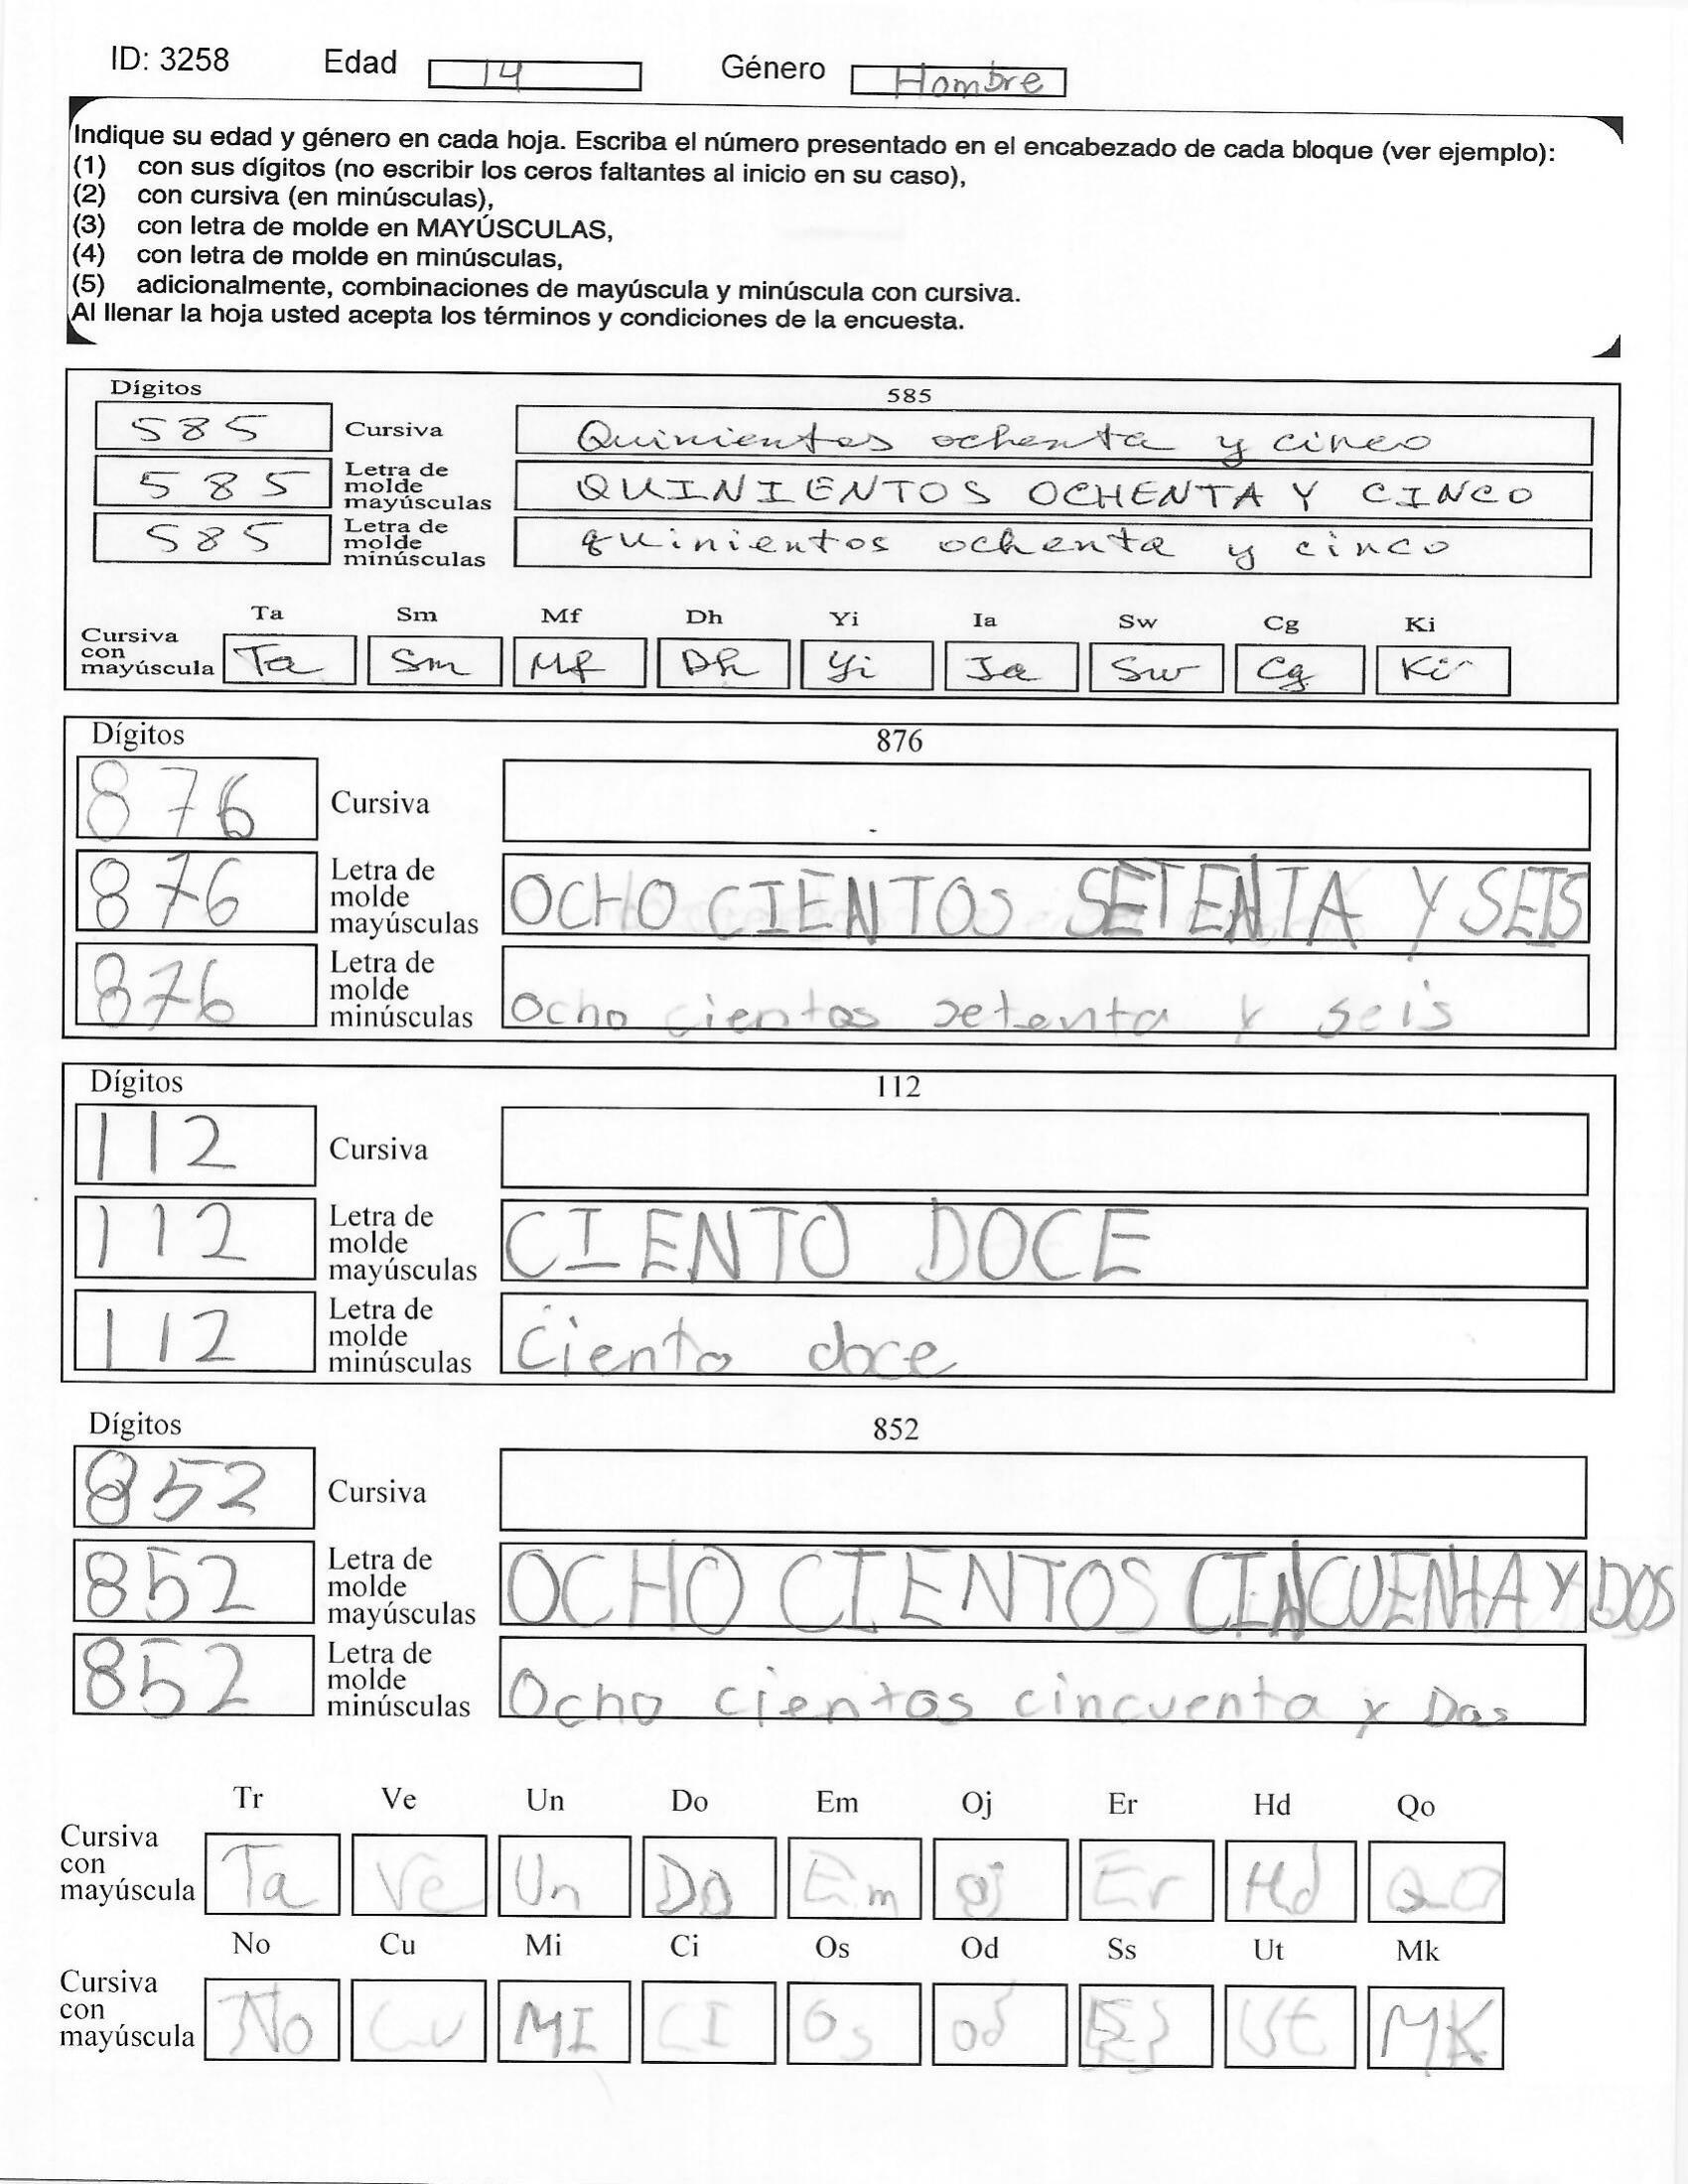 ID: 3258 Edad 14 Género Hombre
Indique su edad y género en cada hoja. Escriba el número presentado en el encabezado de cada bloque (ver ejemplo):
(1) con sus dígitos (no escribir los ceros faltantes al inicio en su caso),
(2) con cursiva (en minúsculas),
(3) con letra de molde en MAYÚSCULAS,
(4) con letra de molde en minúsculas,
(5) adicionalmente, combinaciones de mayúscula y minúscula con cursiva.
Al llenar la hoja usted acepta los términos y condiciones de la encuesta.
Dígitos 585
585 Cursiva Quinientos ochenta y cinco
585 Letra de molde mayúsculas QUINIENTOS OCHENTA Y CINCO
585 Letra de molde minúsculas quinientos ochenta y cinco
Ta Sm Mf Dh Yi Ia Sw Cg Ki
Cursiva con mayúscula Ta Sm Mf Dh Yi Ia Sw Cg Ki
Dígitos 876
876 Cursiva
876 Letra de molde mayúsculas OCHO CIENTOS SETENTA Y SEIS
876 Letra de molde minúsculas Ocho cientos setenta y seis
Dígitos 112
112 Cursiva
112 Letra de molde mayúsculas CIENTO DOCE
112 Letra de molde minúsculas Ciento doce
Dígitos 852
852 Cursiva
852 Letra de molde mayúsculas OCHO CIENTOS CINCUENTA Y DOS
852 Letra de molde minúsculas Ocho cientos cincuenta y Dos
Tr Ve Un Do Em Oj Er Hd Qo
Cursiva con mayúscula Ta Ve Un DO Em oj Er Hd QO
No Cu Mi Ci Os Od Ss Ut Mk
Cursiva con mayúscula No Cu MI CI Os od Ut MK